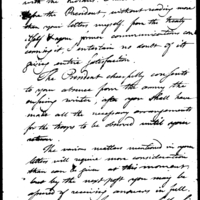 with the Indians
before the President, without reading more
than your letter myself, from the treaty
itself & your former communications con
cerning it, I entertain no doubt of it
giving entire satisfaction.
The President chearfully consents
to your absence from the army the
ensuing winter, after you shall have
made all the necessary arrangements
for the troops to be desired until your
return.
The various matters mentioned in your
letters will require more consideration
than can be given at this moment,
but by the next post you may be
assured of receiving answers in full.